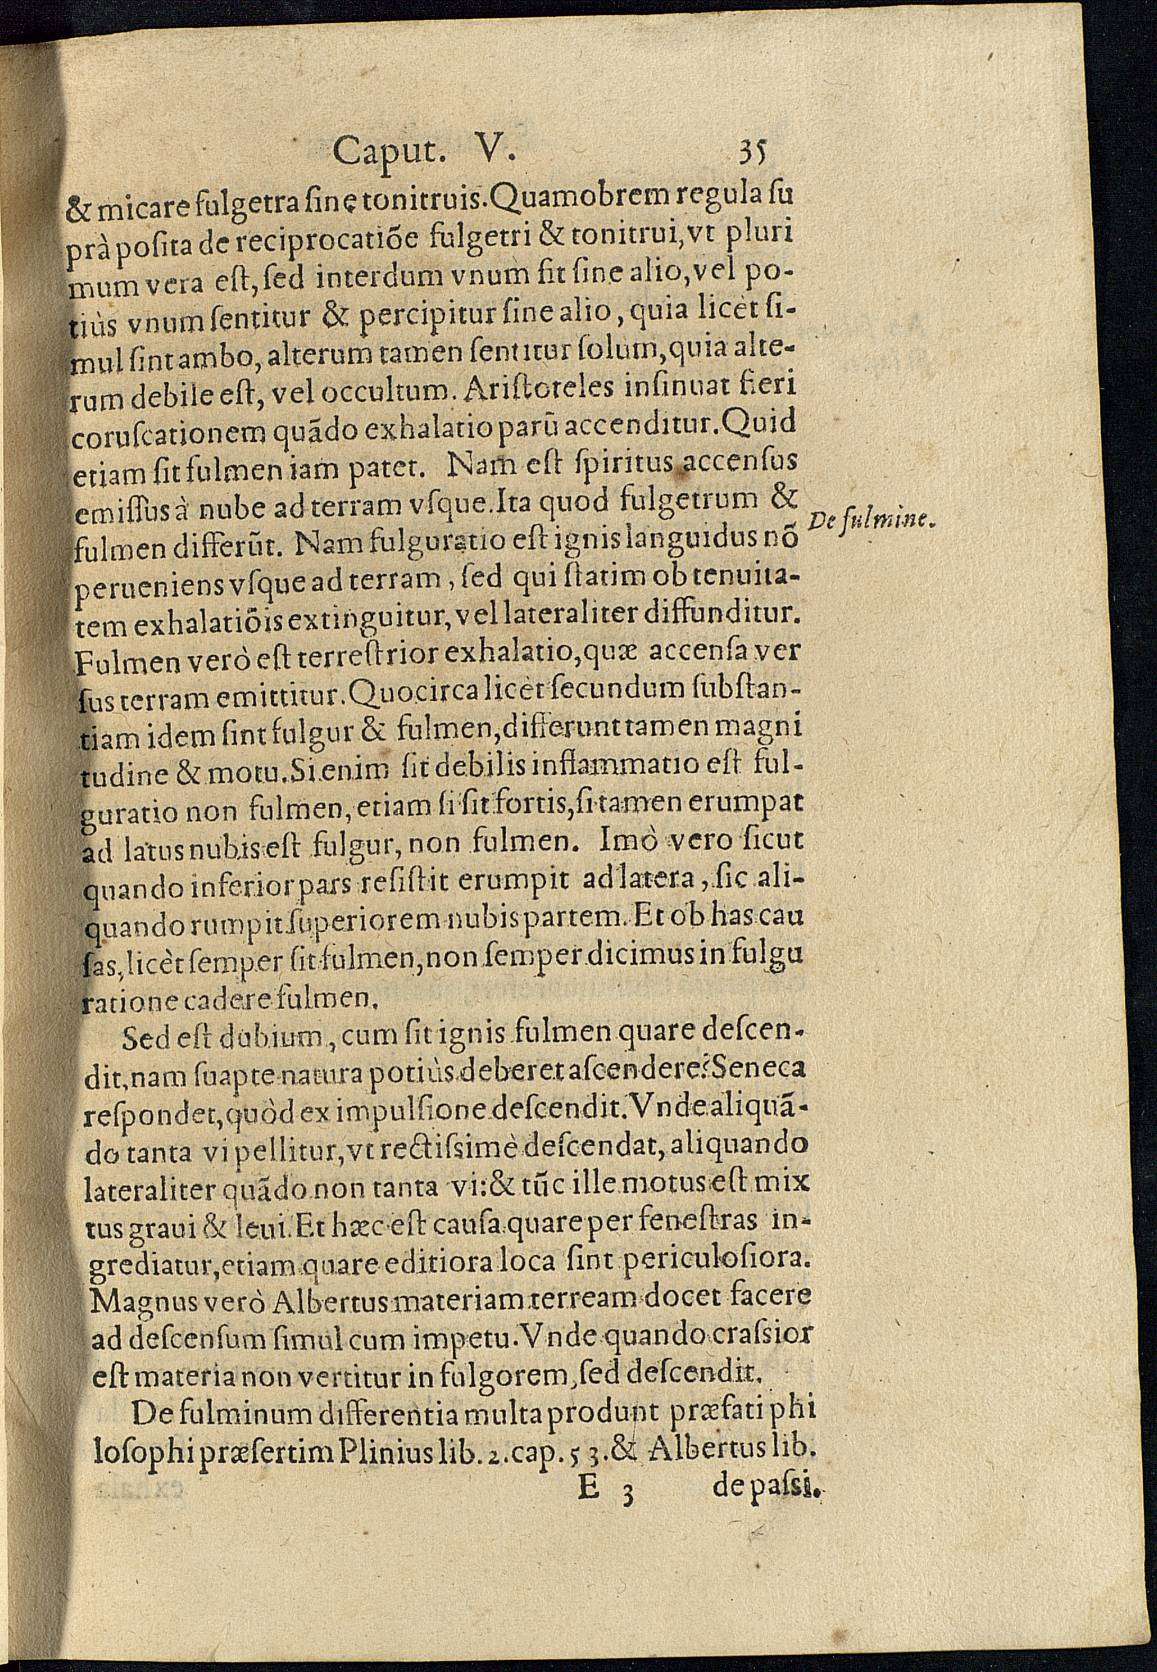 Caput. V. 35
& micare fulgetra sine tonitruis. Quamobrem regula su
prà posita de reciprocatiõe fulgetri & tonitrui, vt pluri
mum vera est, sed interdum vnum fit sine alio, vel po-
tiùs vnum sentitur & percipitur sine alio, quia licèt si-
mul sint ambo, alterum tamen sentitur solum, quia alte-
rum debile est, vel occultum. Aristoteles insinuat fieri
coruscationem quãdo exhalatio parũ accenditur. Quid
etiam sit fulmen iam patet. Nam est spiritus accensus
emissus à nube ad terram vsque. Ita quod fulgetrum &
De fulmine.
fulmen differũt. Nam fulguratio est ignis languidus nõ
perueniens vsque ad terram, sed qui statim ob tenuita-
tem exhalatiõis extinguitur, vel lateraliter diffunditur.
Fulmen verò est terrestrior exhalatio, quæ accensa ver
sus terram emittitur. Quocirca licèt secundum substan-
tiam idem sint fulgur & fulmen, differunt tamen magni
tudine & motu. Si enim sit debilis inflammatio est ful-
guratio non fulmen, etiam si sit fortis, si tamen erumpat
ad latus nubis est fulgur, non fulmen. Imò vero sicut
quando inferior pars resistit erumpit ad latera, sic ali-
quando rumpit superiorem nubis partem. Et ob has cau
sas, licèt semper sit fulmen, non semper dicimus in fulgu
ratione cadere fulmen.
Sed est dubium, cum sit ignis fulmen quare descen-
dit, nam suapte natura potiùs deberet ascendere? Seneca
respondet, quòd ex impulsione descendit. Vnde aliquã-
do tanta vi pellitur, vt rectissimè descendat, aliquando
lateraliter quãdo non tanta vi: & tũc ille motus est mix
tus graui & leui. Et hæc est causa quare per fenestras in-
grediatur, etiam quare editiora loca sint periculosiora.
Magnus verò Albertus materiam terream docet facere
ad descensum simul cum impetu. Vnde quando crassior
est materia non vertitur in fulgorem, sed descendit.
De fulminum differentia multa produnt præfati phi
losophi præsertim Plinius lib. 2. cap. 53. & Albertus lib.
E 3 de passi.